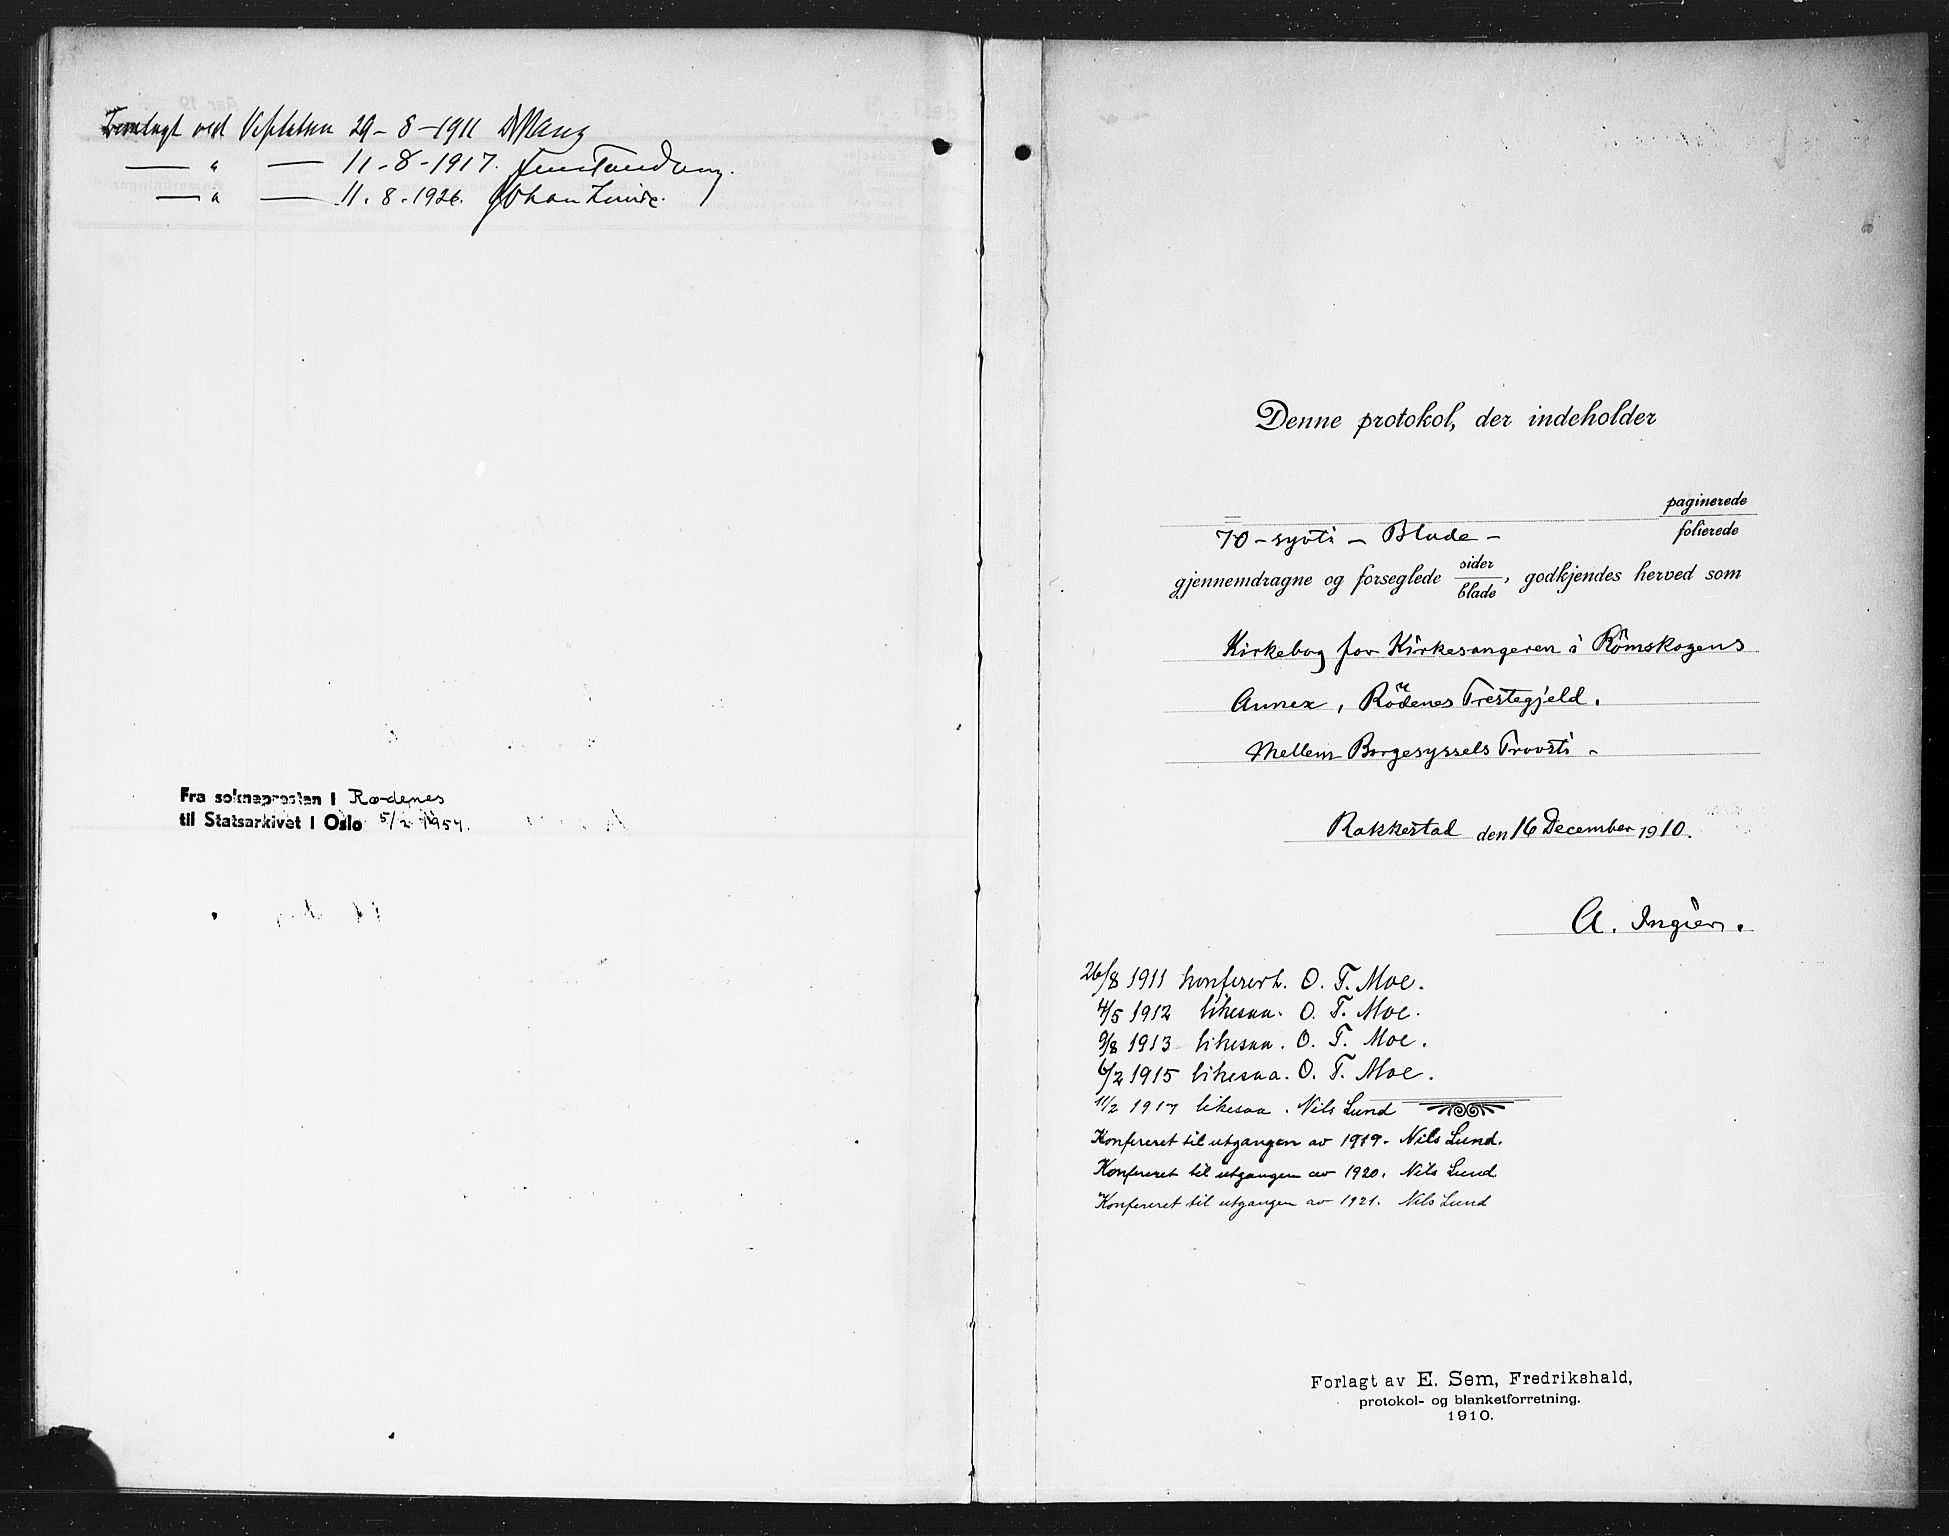 Fremlagt ved Visitatsen 29-8-1911
— " — 11-8-1917. Jens Tandberg.
— " — 11.8.1926. Johan Lunde.
Fra soknepresten i Rødenes
til Statsarkivet i Oslo 5/2 1954.
Denne protokol, der indeholder
paginerede
70 - sytti - Blade -
folierede
gjennemdragne og forseglede sider/blade, godkjendes herved som
Kirkebog for Kirkesangeren i Römskogens
Annex, Rödenes Prestegjeld.
Mellem Borgesyssels Provsti -
Rakkestad den 16 December 1910.
A. Ingier.
26/8 1911 konferert. O. T. Moe.
4/5 1912 likesaa. O. T. Moe.
9/8 1913 likesaa. O. T. Moe.
6/2 1915 likesaa. O. T. Moe.
11/2 1917 likesaa. Nils Lund
Konfereret til utgangen av 1919. Nils Lund.
Konfereret til utgangen av 1920. Nils Lund
Konfereret til utgangen av 1921. Nils Lund
Forlagt av E. Sem, Fredrikshald,
protokol- og blanketforretning.
1910.